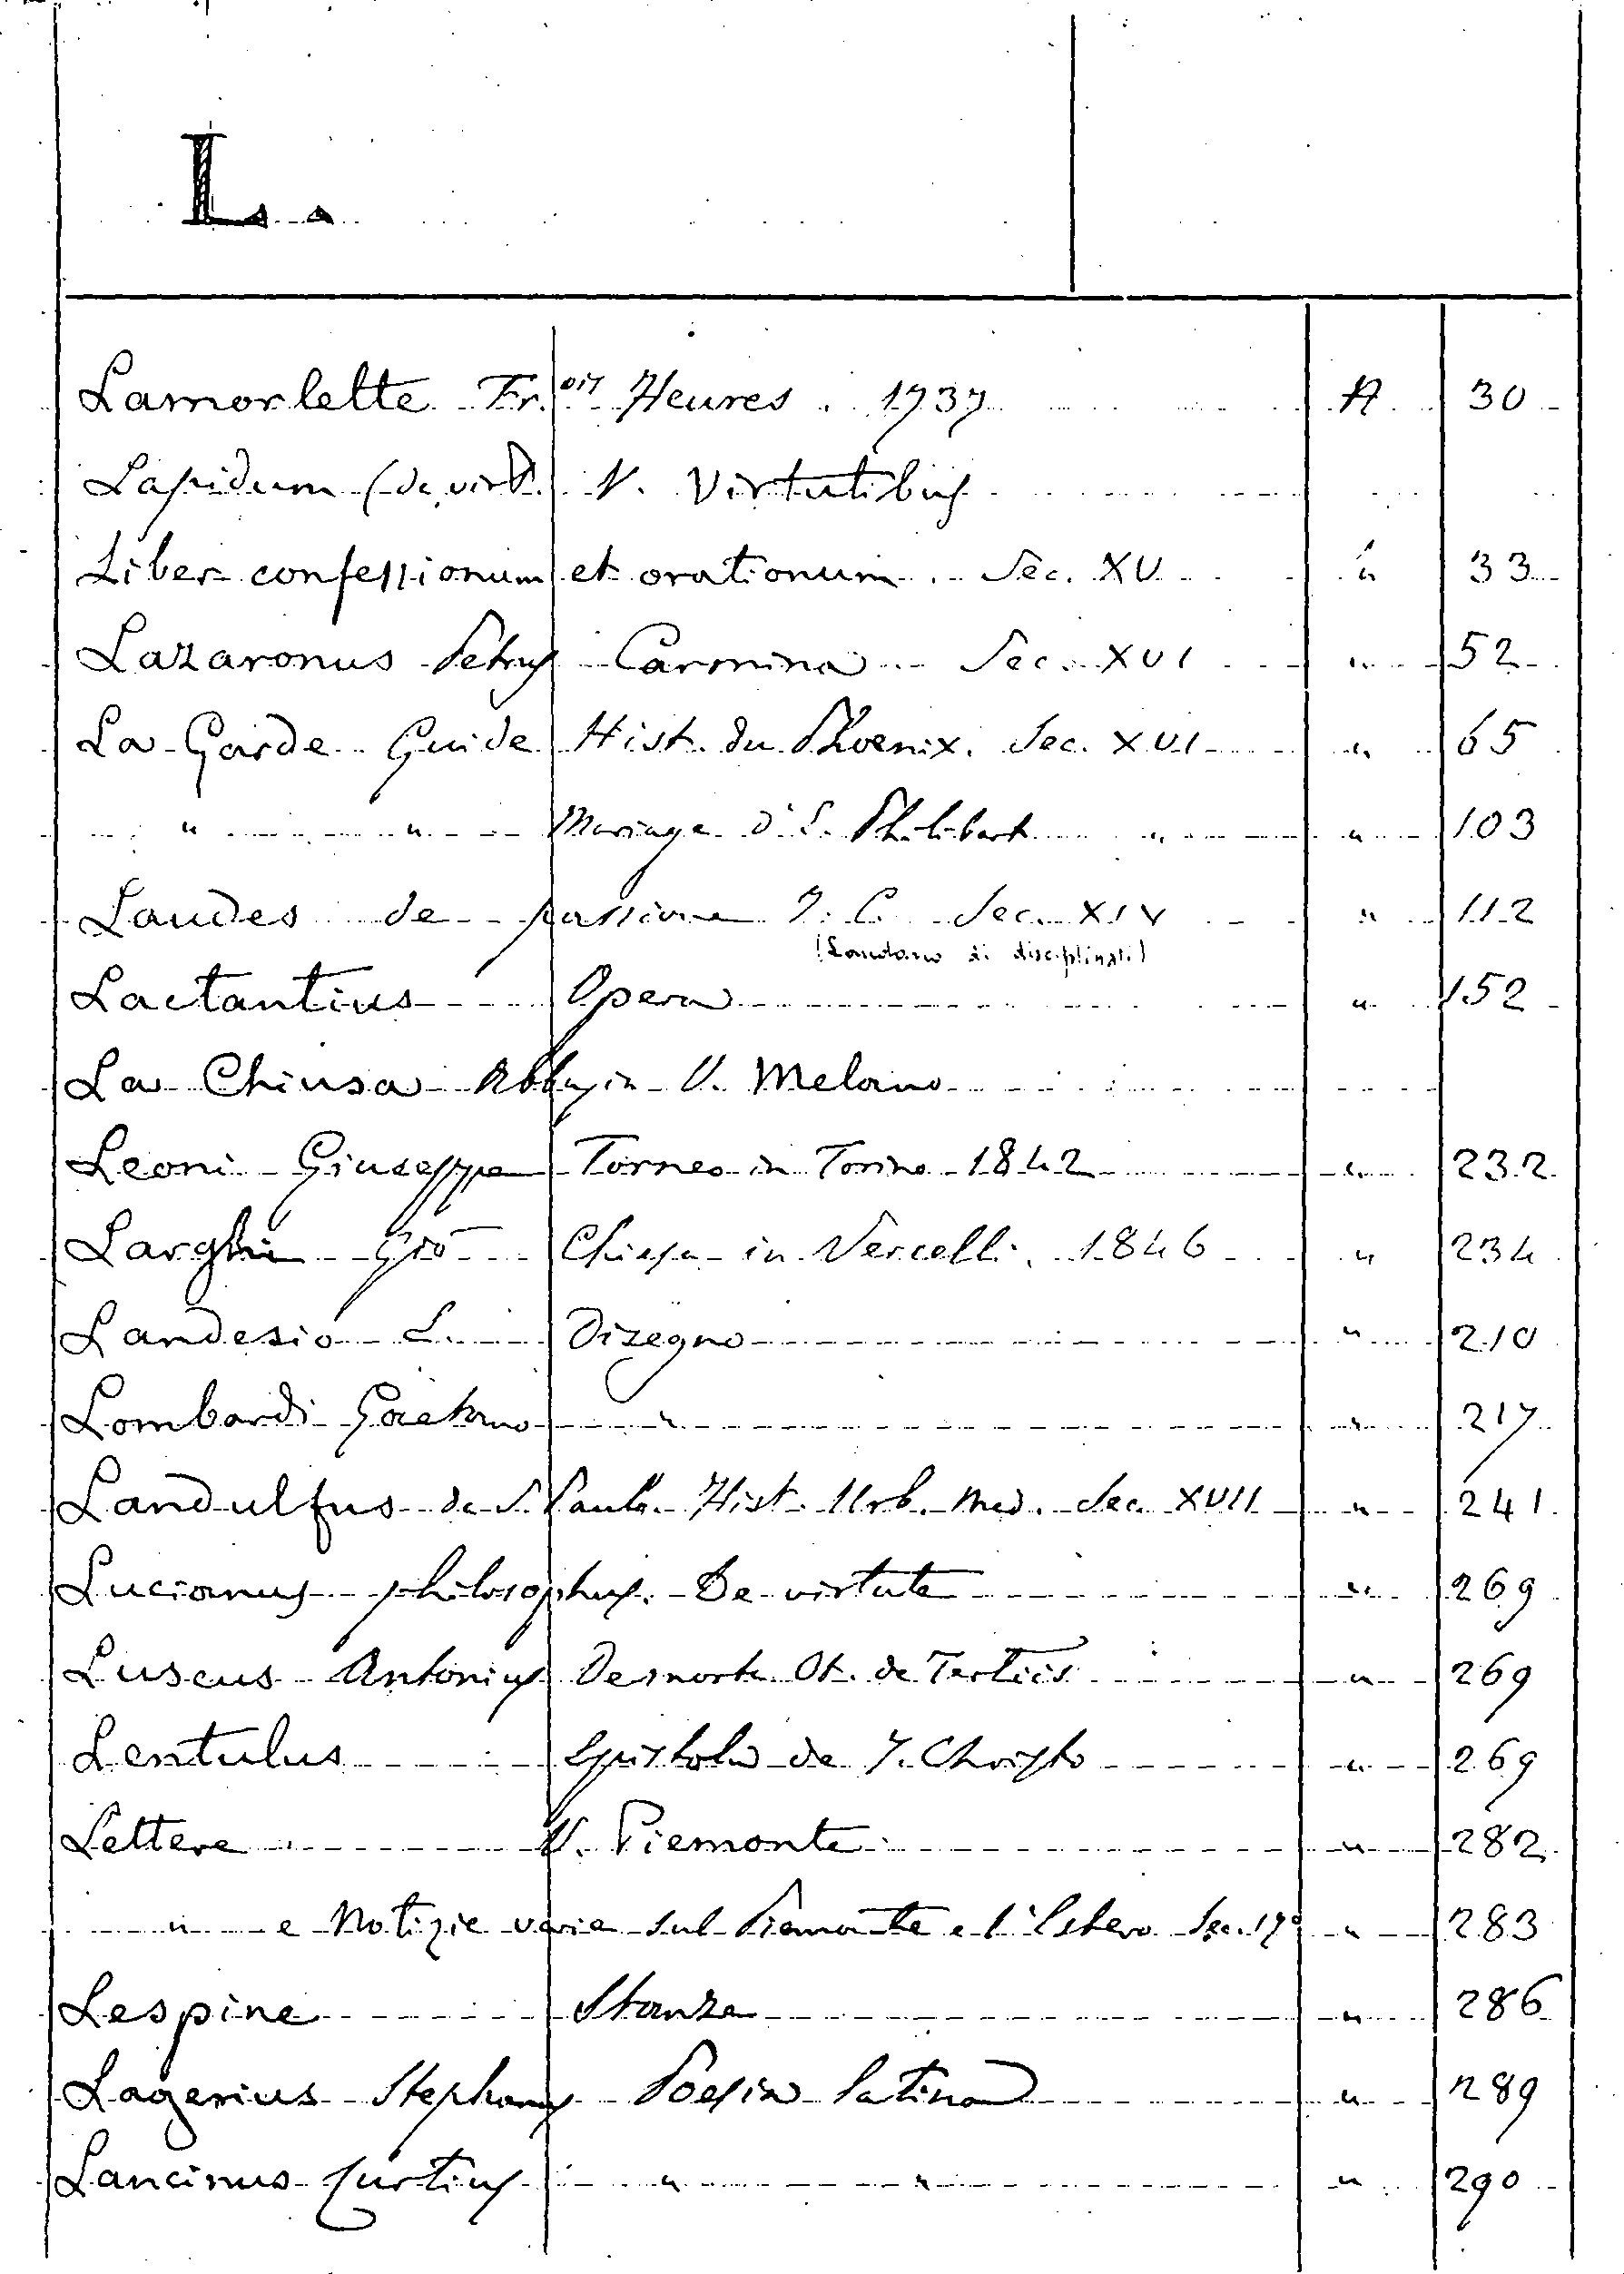 L.
Lamorlette Fr.ois Heures. 1737 A 30
Lapidum (de virt. V. Virtutibus
Liber confessionum et orationum. Sec. XV " 33
Lazaronus Petrus Carmina Sec. XVI " 52
La Garde Guide Hist. du Phoenix. Sec. XVI " 65
" " Mariage d'E. Philibert " " 103
Laudes de passione J. C. Sec. XIV " 112
(Laudario di disciplinati)
Lactantius Opera " 152
La Chiusa Abbazia V. Melano
Leoni Giuseppe Torneo in Torino 1842 " 232
Larghi Gio Chiesa in Vercelli. 1846 " 234
Landesio L. Disegno " 210
Lombardi Gaetano " " 217
Landulfus de S. Paulo. Hist. Urb. Med. Sec. XVII " 241
Lucianus philosophus. De virtute " 269
Luscus Antonius De morte Ot. de Tertiis " 269
Lentulus Epistola de J. Christo " 269
Lettere V. Piemonte " 282
" e Notizie varie sul Piemonte e l'Estero Sec. 17° " 283
Lespine Stanze " 286
Lagerius Stephanus Poesia latina " 289
Lancinus Curtius " " " 290